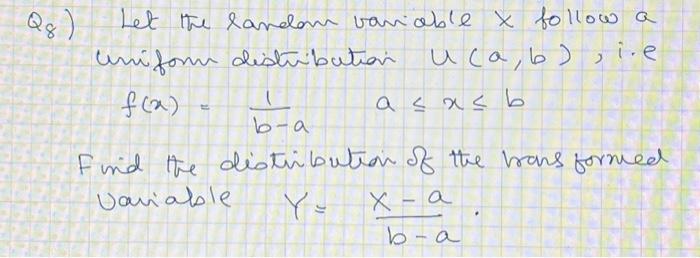 Q8) Let the random variable X follow a
uniform distribution U(a,b), i.e
f(x) = 1/(b-a) a ≤ x ≤ b
Find the distribution of the transformed
variable Y = (X-a)/(b-a).